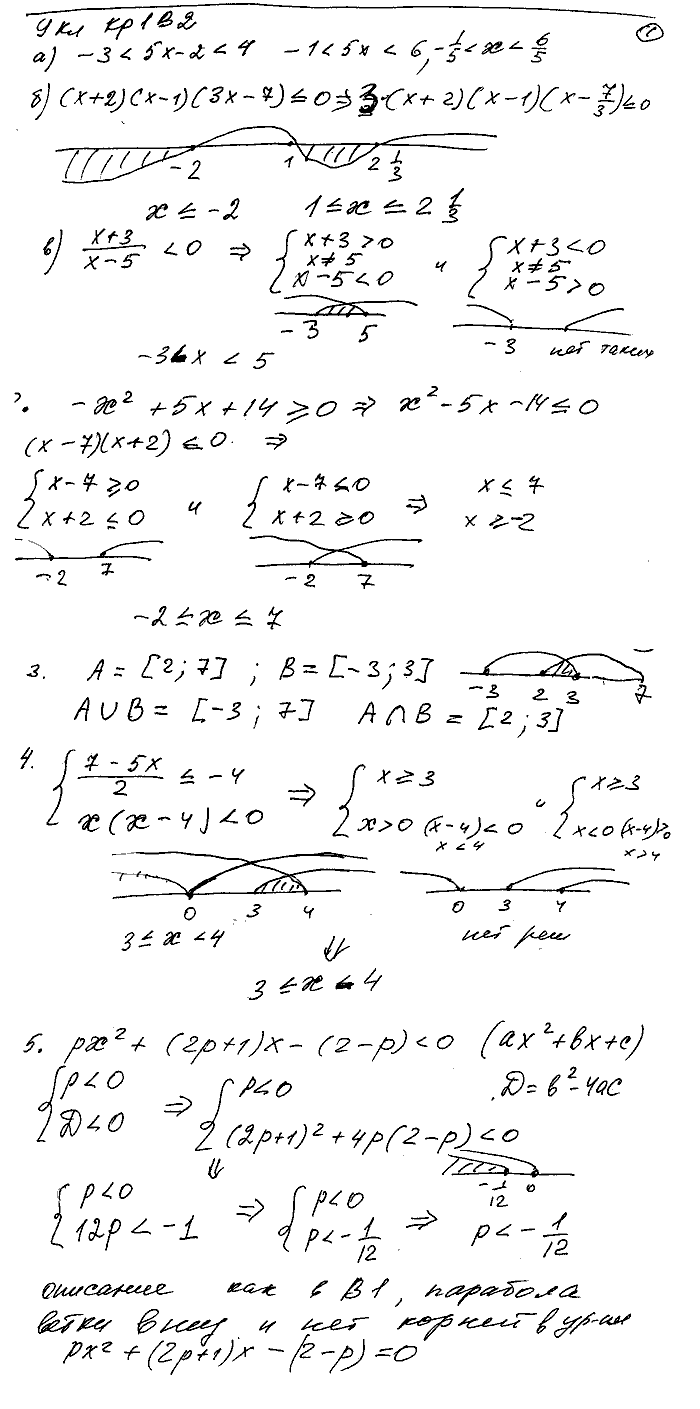 9 кл Кр 1 В 2
1
а) -3 < 5x-2 < 4   -1 < 5x < 6, -1/5 < x < 6/5
б) (x+2)(x-1)(3x-7) ≤ 0 ⇒ 3·(x+2)(x-1)(x-7/3) ≤ 0
-2   1   2 1/3
x ≤ -2   1 ≤ x ≤ 2 1/3
в) (x+3)/(x-5) < 0 ⇒ { x+3 > 0   x ≠ 5   x-5 < 0   и   { x+3 < 0   x ≠ 5   x-5 > 0
-3   5   -3   нет таких
-3 < x < 5
-x² + 5x + 14 ≥ 0 ⇒ x² - 5x - 14 ≤ 0
(x-7)(x+2) ≤ 0. ⇒
{ x-7 ≥ 0   и   { x-7 ≤ 0   ⇒   x ≤ 7
x+2 ≤ 0   x+2 ≥ 0   x ≥ -2
-2   7   -2   7
-2 ≤ x ≤ 7
3. A = [2; 7] ; B = [-3; 3]   -3   2   3   7
A ∪ B = [-3; 7]   A ∩ B = [2; 3]
4. { (7-5x)/2 ≤ -4   ⇒   { x ≥ 3   и   { x ≥ 3
x(x-4) < 0   x > 0 (x-4) < 0   x < 0 (x-4) > 0
x < 4   x > 4
0   3   4   0   3   4
3 ≤ x < 4   нет реш
⇓
3 ≤ x < 4
5. px² + (2p+1)x - (2-p) < 0   (ax² + bx + c)
{ p < 0   ⇒   { p < 0   D = b² - 4ac
D < 0   (2p+1)² + 4p(2-p) < 0
⇓   -1/12   0
{ p < 0   ⇒   { p < 0   ⇒   p < -1/12
12p < -1   p < -1/12
описание как в В1, парабола
ветки вниз и нет корней в ур-ии
px² + (2p+1)x - (2-p) = 0